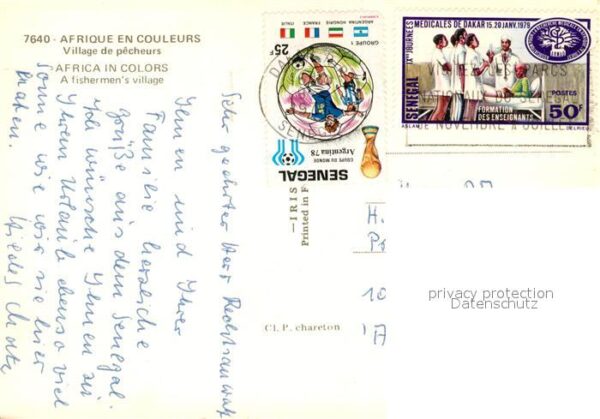 7640 - AFRIQUE EN COULEURS
Village de pêcheurs
AFRICA IN COLORS
A fishermen's village
Sehr geehrter Herr Rechtsanwalt
Ihnen und Ihrer
Familie herzliche
Grüße aus dem Senegal.
Ich wünsche Ihnen zu
Ihrem Urlaub ebenso viel
Sonne wie wir sie hier
haben.
25F
GROUPE 1
ARGENTINE
HONGRIE
FRANCE
ITALIE
COUPE DU MONDE
Argentina 78
SENEGAL
SENEGAL
JOURNÉES MEDICALES DE DAKAR 15.20 JANV.1979
FORMATION
DES ENSEIGNANTS
POSTES
50F
NOVEMBRE A JUILLET
— IRIS
Printed in F
Cl. P. chareton
H.
10
privacy protection
Datenschutz